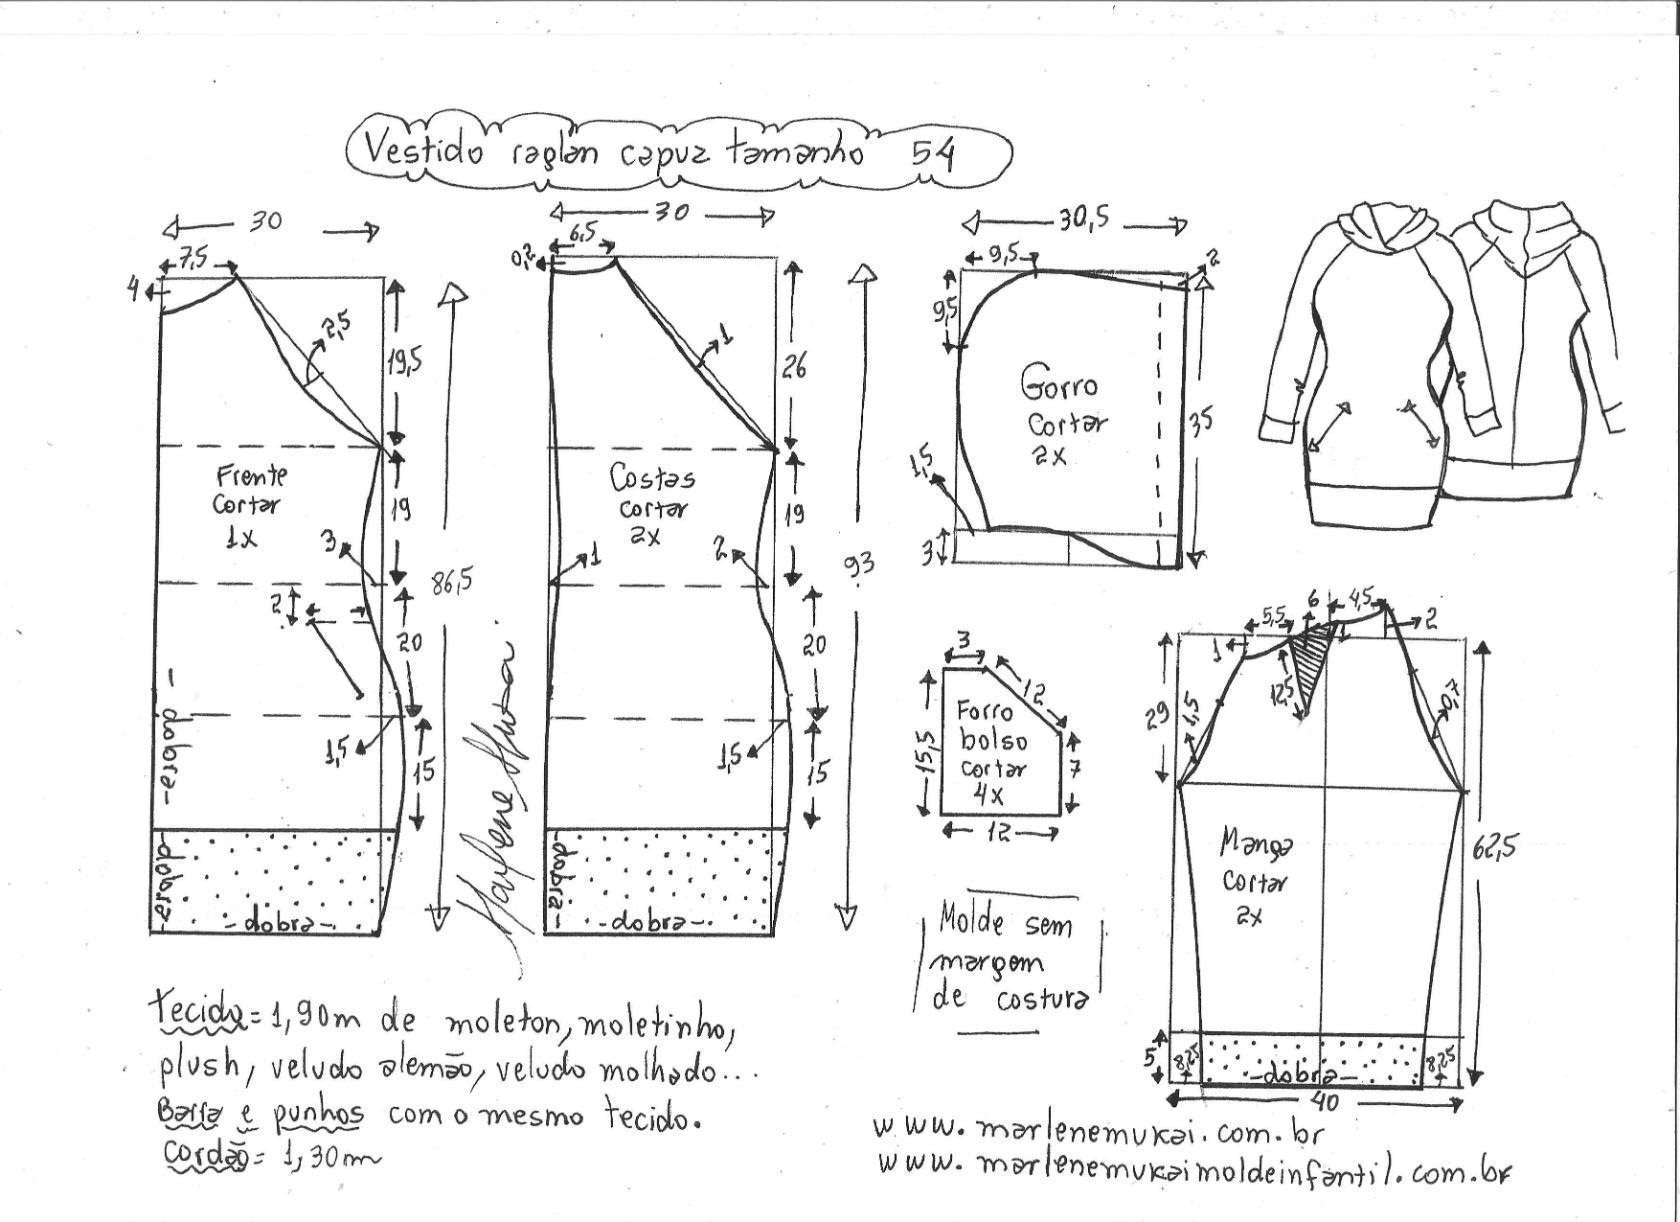 Vestido raglan capuz tamanho 54
30
7,5
4
2,5
19,5
Frente
cortar
1x
19
3
86,5
2
20
-dobra-
1,5
15
-dobra-
-dobra-
30
6,5
0,2
1
26
Costas
cortar
2x
19
1
2
93
20
1,5
15
-dobra-
-dobra-
30,5
9,5
2
9,5
Gorro
cortar
2x
35
1,5
3
3
12
15,5
Forro
bolso
cortar
4x
7
12
5,5
6
4,5
1
1
2
12,5
29
1,5
0,7
Manga
cortar
2x
62,5
5
8,25
-dobra-
8,25
40
Molde sem
margem
de costura
Tecido= 1,90m de moleton, moletinho,
plush, veludo alemão, veludo molhado...
Barra e punhos com o mesmo tecido.
cordão= 1,30m
www.marlenemukai.com.br
www.marlenemukaimoldeinfantil.com.br